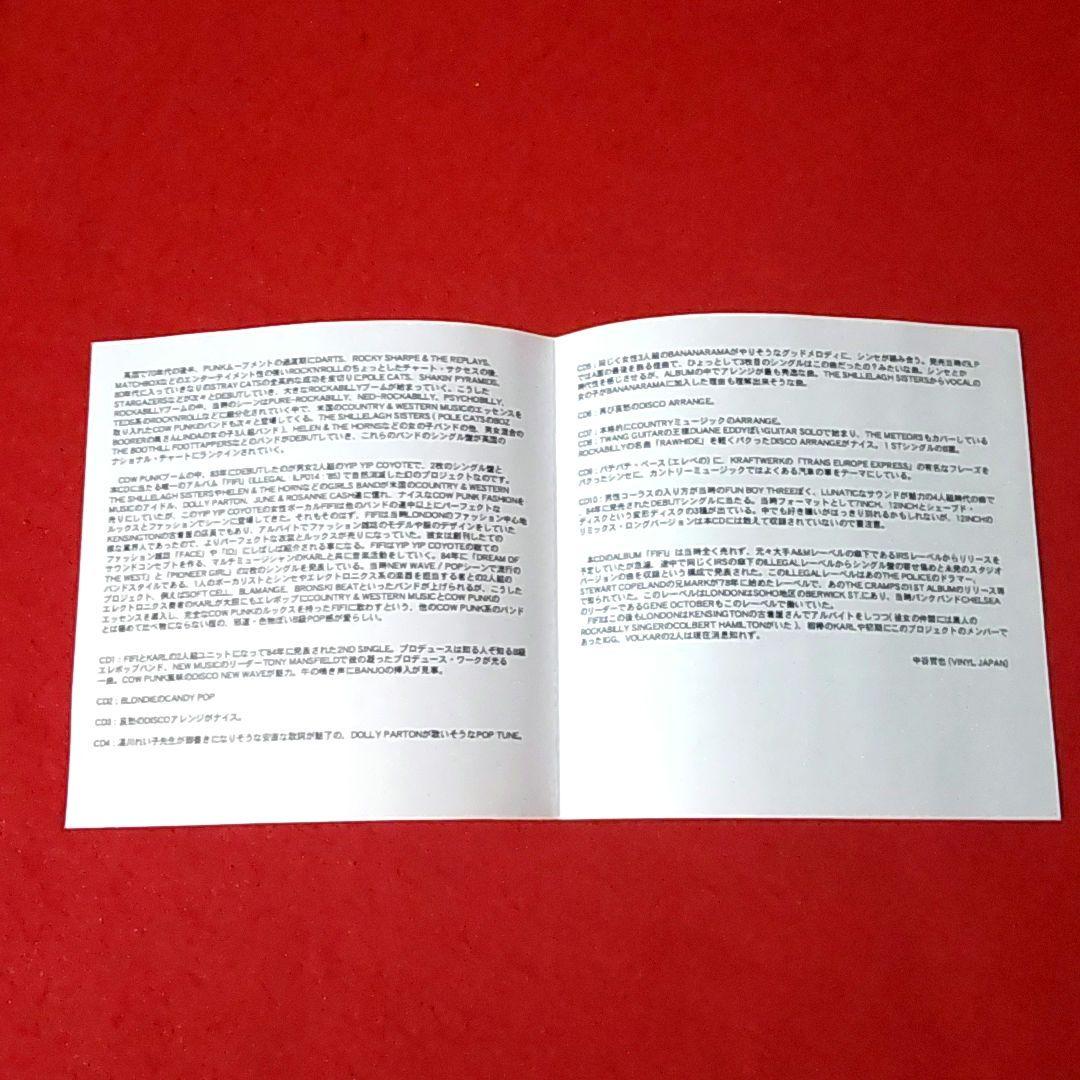 英国で70年代の後半、PUNKムーブメントの過渡期にDARTS、ROCKY SHARPE & THE REPLAYS、
MATCHBOXなどのエンターテイメント性の強いROCK'N'ROLLのちょっとしたチャート・サクセスの後、
80年代に入っていきなりのSTRAY CATSの全英的な成功を皮切りにPOLE CATS、SHAKIN' PYRAMIDS、
STARGAZERSなどが次々とDEBUTしていき、大きなROCKABILLYブームが始まっていく。こうした
ROCKABILLYブームの中、当時のシーンはPURE-ROCKABILLY、NEO-ROCKABILLY、PSYCHOBILLY、
TEDS系のROCK'N'ROLLなどに細分化されていく中で、米国のCOUNTRY & WESTERN MUSICのエッセンスを
取り入れたCOW PUNKのバンドも次々と登場してくる。THE SHILLELAGH SISTERS ( POLE CATSのBOZ
BOORERの奥さんLINDAの女の子3人組バンド )、HELEN & THE HORNSなどの女の子バンドの他、男女混合の
THE BOOTHILL FOOTTAPPERSなどのバンドがDEBUTしていき、これらのバンドのシングル盤が英国の
ナショナル・チャートにランクインされていく。
COW PUNKブームの中、83年にDEBUTしたのが男女2人組のYIP YIP COYOTEで、2枚のシングル盤と
本CDに当たる唯一のアルバム『FIFI』(ILLEGAL : ILP014 : '85) で自然消滅した幻のプロジェクトなのです。
THE SHILLELAGH SISTERSやHELEN & THE HORNSなどのGIRLS BANDが米国のCOUNTRY & WESTERN
MUSICのアイドル、DOLLY PARTON、JUNE & ROSANNE CASH達に憧れ、ナイスなCOW PUNK FASHIONを
売りにしていたが、このYIP YIP COYOTEの女性ボーカルFIFIは他のバンドの連中以上にパーフェクトな
ルックスとファッションでシーンに登場してきた。それもそのはず、FIFIは当時LONDONのファッション中心地
KENSINGTONの古着屋の店員でもあり、アルバイトでファッション雑誌のモデルや服のデザインをしていた
様な業界人であったので、よりパーフェクトな衣装とルックスが売りになっていた。彼女は創刊したての
ファッション雑誌『FACE』や『ID』にしばしば紹介される事になる。FIFIはYIP YIP COYOTEの全ての
サウンドコンセプトを作る、マルチミュージシャンのKARLと共に音楽活動をしていく。84年に『DREAM OF
THE WEST』と『PIONEER GIRL』の2枚のシングルを発表している。当時NEW WAVE / POPシーンで流行の
バンドスタイルである、1人のボーカリストとシンセやエレクトロニクス系の楽器を担当する者との2人組の
プロジェクト、例えばSOFT CELL、BLAMANGE、BRONSKI BEATといったバンドが上げられるが、こうした
エレクトロニクス奏者のKARLが大胆にもエレポップにCOUNTRY & WESTERN MUSICとCOW PUNKの
エッセンスを導入し、完全なCOW PUNKのルックスを持ったFIFIに歌わすという、他のCOW PUNK系のバンド
とは極めて比べ物にならない程の、邪道・色物ぽいB級POP感が愛らしい。
CD1 : FIFIとKARLの2人組ユニットになって84年に発表された2ND SINGLE。プロデュースは知る人ぞ知るB級
エレポップバンド、NEW MUSICのリーダーTONY MANSFIELDで彼の凝ったプロデュース・ワークが光る
一曲。COW PUNK風味のDISCO NEW WAVEが魅力。牛の鳴き声にBANJOの挿入が見事。
CD2 : BLONDIEのCANDY POP
CD3 : 哀愁のDISCOアレンジがナイス。
CD4 : 湯川れい子先生が御書きになりそうな安直な歌詞が魅了の、DOLLY PARTONが歌いそうなPOP TUNE。
CD5 : 同じく女性3人組のBANANARAMAがやりそうなグッドメロディに、シンセが絡み合う。発売当時のLP
ではA面の最後を飾る佳曲で、ひょっとして3枚目のシングルはこの曲だったの？みたいな曲。シンセとか
時代性を感じさせるが、ALBUMの中でアレンジが最も秀逸な曲。THE SHILLELAGH SISTERSからVOCALの
女の子がBANANARAMAに加入した理由も理解出来そうな曲。
CD6 : 再び哀愁のDISCO ARRANGE。
CD7 : 本格的にCOUNTRYミュージックのARRANGE。
CD8 : TWANG GUITARの王様DUANE EDDYぽいGUITAR SOLOで始まり、THE METEORSもカバーしている
ROCKABILLYの名曲『RAWHIDE』を軽くパクったDISCO ARRANGEがナイス。1STシングルのB面。
CD9 : パチパチ・ベース (エレベの) に、KRAFTWERKの『TRANS EUROPE EXPRESS』の有名なフレーズを
パクったシンセに、カントリーミュージックではよくある汽車の事をテーマにしている。
CD10 : 男性コーラスの入り方が当時のFUN BOY THREEぽく、LUNATICなサウンドが魅力の4人組時代の曲で
、84年に発売されたDEBUTシングルに当たる。当時フォーマットとして7INCH、12INCHとシェープド・
ディスクという変形ディスクの3種が出ている。中でも好き嫌いがはっきり別れるかもしれないが、12INCHの
リミックス・ロングバージョンは本CDには敢えて収録されていないので要注意。
本CDのALBUM『FIFI』は当時全く売れず、元々大手A&Mレーベルの傘下であるIRSレーベルからリリースを
予定していたが急遽、途中で同じくIRSの傘下のILLEGALレーベルからシングル盤の寄せ集めと未発のスタジオ
バージョンの曲を収録という構成で発表された。このILLEGALレーベルはあのTHE POLICEのドラマー、
STEWART COPELANDの兄MARKが78年に始めたレーベルで、あのTHE CRAMPSの1ST ALBUMのリリース等
で知られていた。このレーベルはLONDONはSOHO地区のBERWICK ST.にあり、当時パンクバンドCHELSEA
のリーダーであるGENE OCTOBERもこのレーベルで働いていた。
FIFIはこの後もLONDONはKENSINGTONの古着屋さんでアルバイトをしつつ (彼女の仲間には黒人の
ROCKABILLY SINGERのCOLBERT HAMILTONがいた )、相棒のKARLや初期にこのプロジェクトのメンバーで
あったIGG、VOLKARの2人は現在消息知れず。
中谷哲也 (VINYL JAPAN)